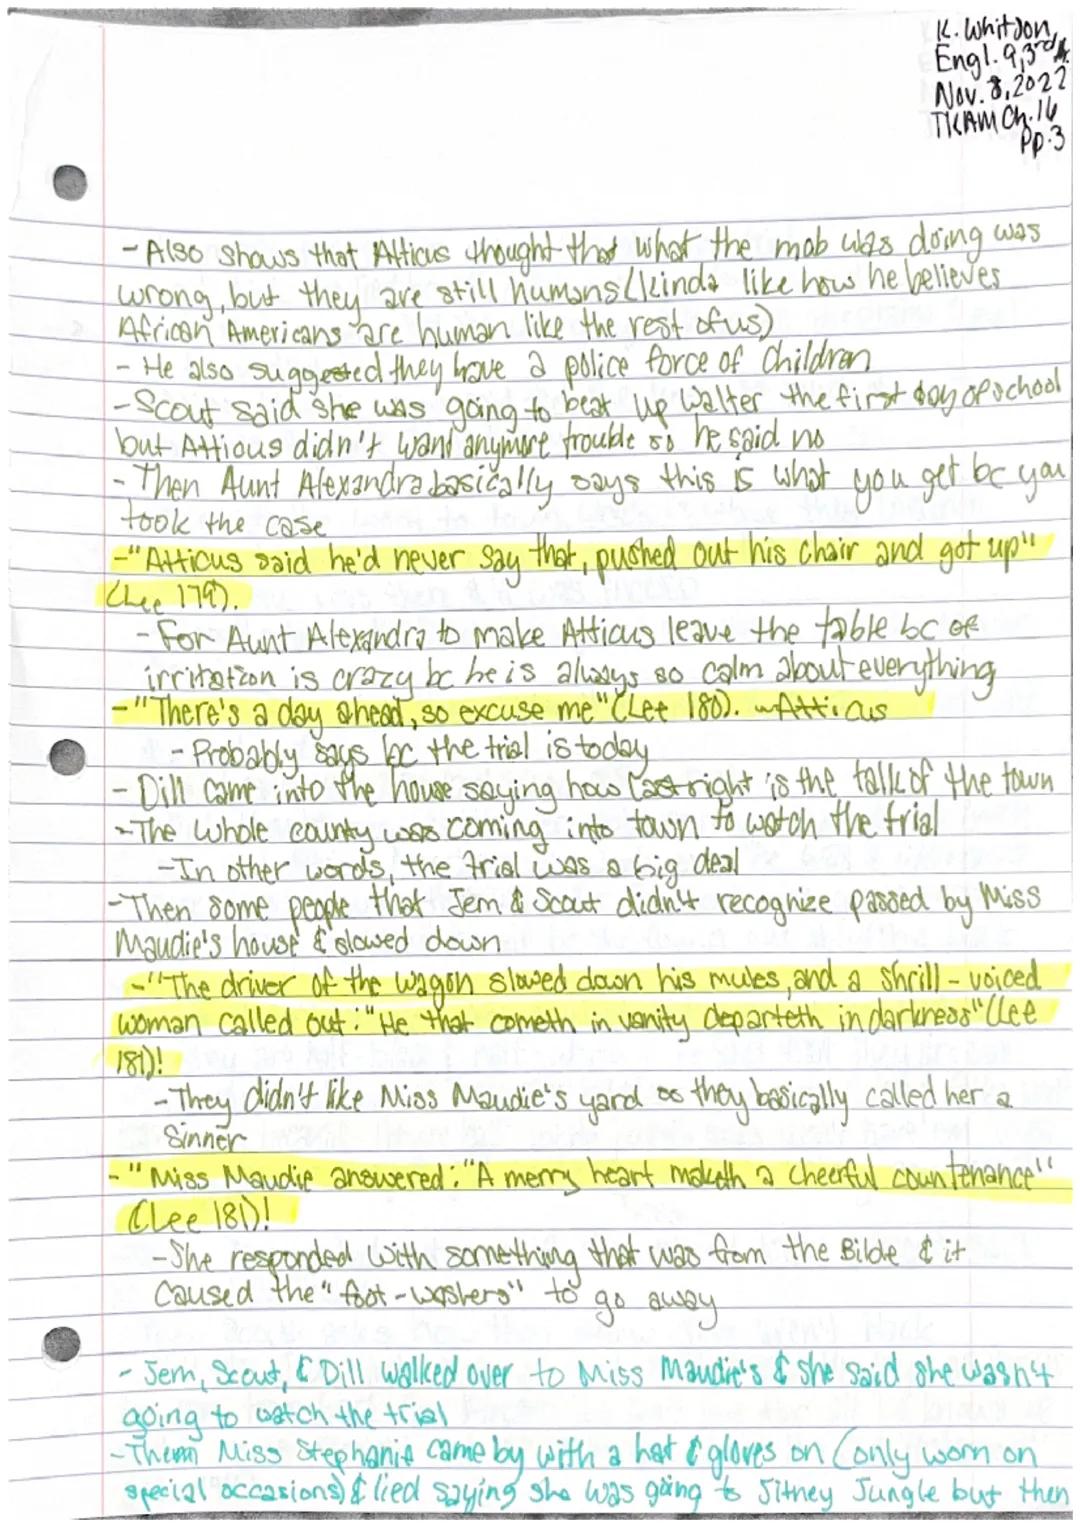 K. Whitson
Engl. 9, 3rd
Nov. 8, 2022
TKAM Ch. 16
Pp. 3
- Also shows that Atticus thought that what the mob was doing was
wrong, but they are still humans (kinda like how he believes
African Americans are human like the rest of us)
- He also suggested they have a police force of children
- Scout said she was going to beat up Walter the first day of school
but Atticus didn't want anymore trouble so he said no
- Then Aunt Alexandra basically says this is what you get bc you
took the case
- "Atticus said he'd never say that, pushed out his chair and got up"
(Lee 179).
- For Aunt Alexandra to make Atticus leave the table bc of
irritation is crazy bc he is always so calm about everything
- "There's a day ahead, so excuse me" (Lee 180). ~Atticus
- Probably says bc the trial is today
- Dill came into the house saying how last night is the talk of the town
- The whole county was coming into town to watch the trial
- In other words, the trial was a big deal
- Then some people that Jem & Scout didn't recognize passed by Miss
Maudie's house & slowed down
- "The driver of the wagon slowed down his mules, and a shrill-voiced
woman called out: "He that cometh in vanity departeth in darkness" (Lee
181)!
- They didn't like Miss Maudie's yard so they basically called her a
sinner
- "Miss Maudie answered: "A merry heart maketh a cheerful countenance"
(Lee 181)!
- She responded with something that was from the Bible & it
caused the "foot-washers" to go away
- Jem, Scout, & Dill walked over to Miss Maudie's & she said she wasn't
going to watch the trial
- Then Miss Stephanie came by with a hat & gloves on (only worn on
special occasions) & lied saying she was going to Jitney Jungle but then